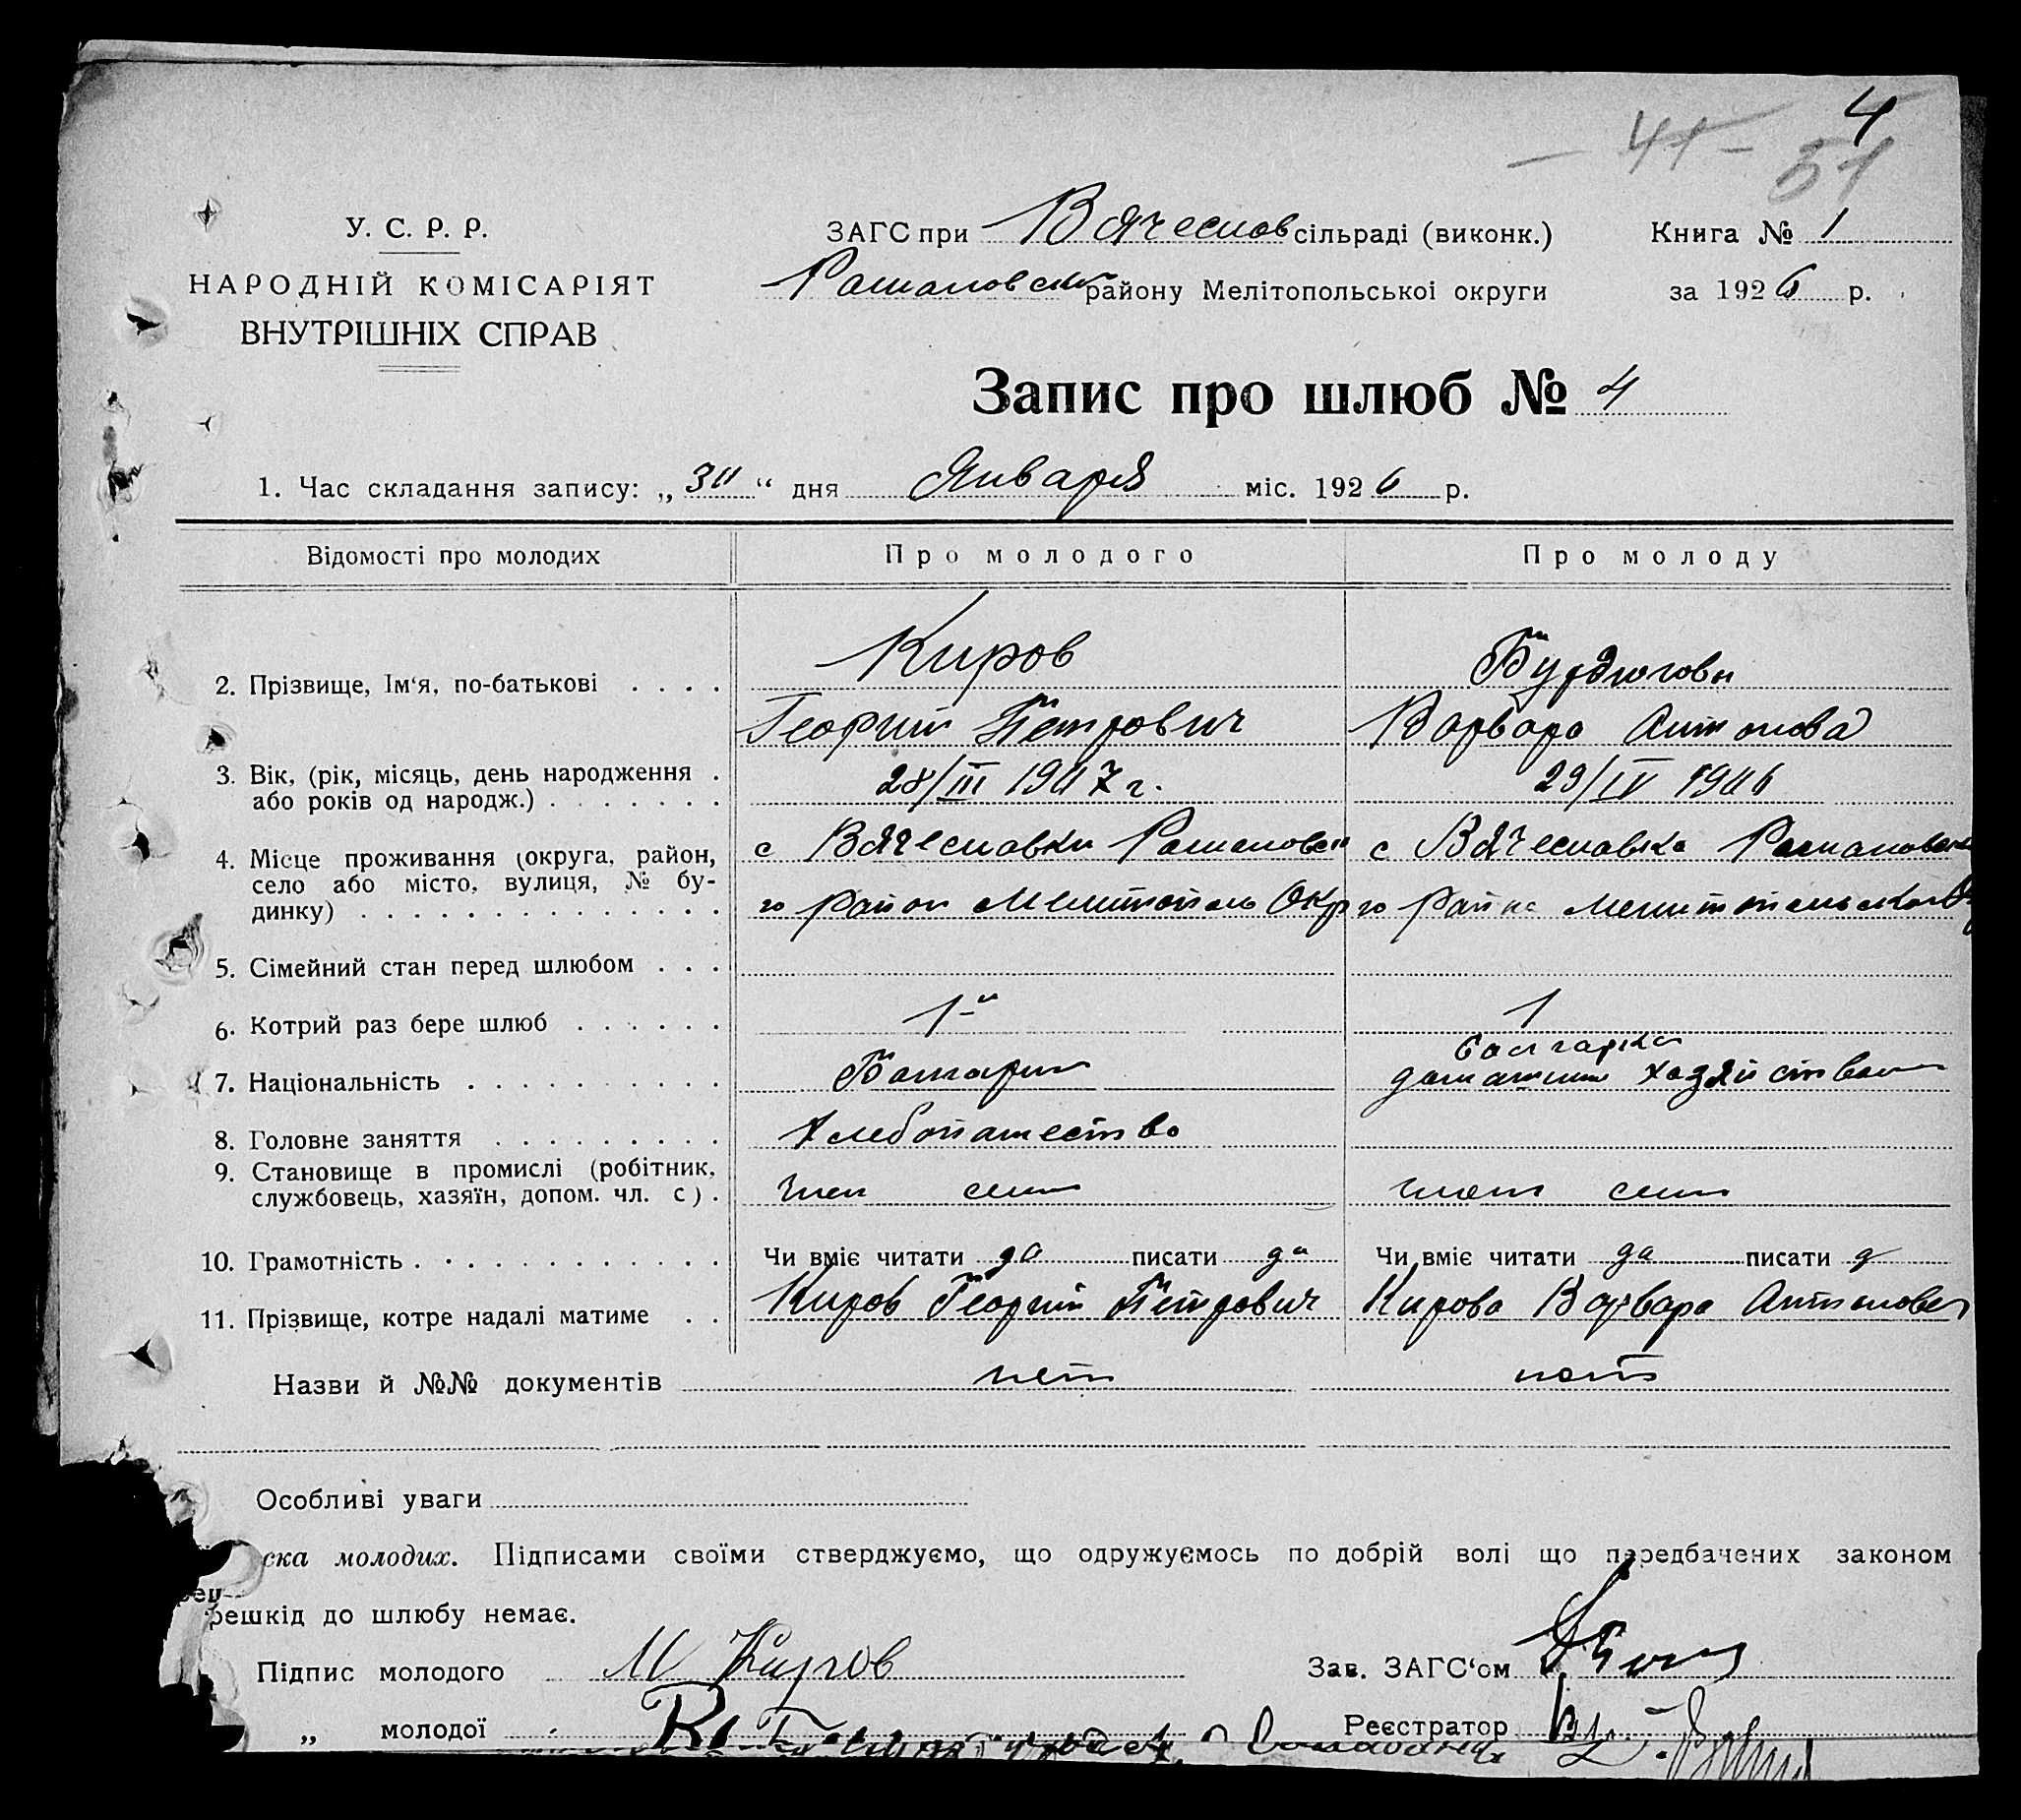 4
— 41 —
51
У. С. Р. Р.
НАРОДНІЙ КОМІСАРІЯТ
ВНУТРІШНІХ СПРАВ
ЗАГС при Вячеслов сільраді (виконк.)
району Мелітопольської округи
Книга № 1
за 1926 р.
Запис про шлюб № 4
1. Час складання запису: „30“ дня Января міс. 1926 р.
Відомості про молодих
Про молодого
Про молоду
2. Прізвище, Ім‘я, по-батькові . . . .
Киров
Георгий Петрович
Бурдюгова
Варвара Антонова
3. Вік, (рік, місяць, день народження .
або років од народж.) . . . . . . .
28/III 1907 г.
29/IV 1906
4. Місце проживання (округа, район,
село або місто, вулиця, № бу-
динку) . . . . . . . . . . . . . . .
с Вячеславки Романовско
го район Мелитополь Окр
с Вячеславка Романовско
го Район Мелитопольской
5. Сімейний стан перед шлюбом . . .
6. Котрий раз бере шлюб . . . . . .
1й
1
7. Національність . . . . . . . . . .
Болгарин
болгарка
домашнее хозяйство
8. Головне заняття . . . . . . . . .
Хлебопашество
9. Становище в промислі (робітник,
службовець, хазяїн, допом. чл. с) .
член семи
член семи
10. Грамотність . . . . . . . . . . . .
Чи вміє читати да писати да
Чи вміє читати да писати д
11. Прізвище, котре надалі матиме . .
Киров Георгий Петрович
Кирова Варвара Антонова
Назви й №№ документів
нет
нет
Особливі уваги
ска молодих. Підписами своїми стверджуємо, що одружуємось по добрій волі що передбачених законом
решкід до шлюбу немає.
Підпис молодого
Киров
Зав. ЗАГС‘ом
„ молодої
Реєстратор